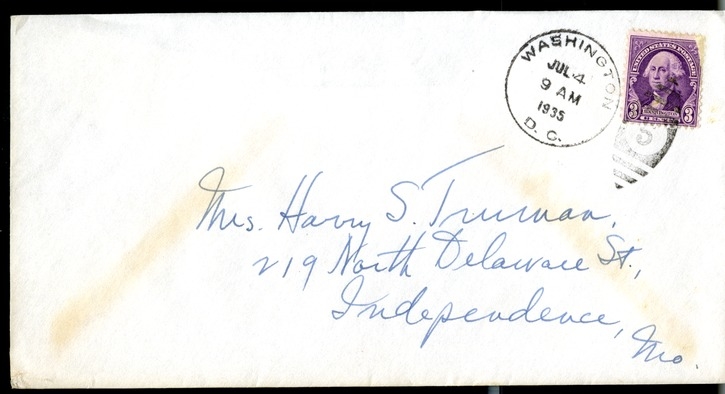 WASHINGTON
JUL 4
9 AM
1935
D. C.
UNITED STATES POSTAGE
3 3
5
Mrs. Harry S. Truman,
219 North Delaware St.,
Independence,
Mo.